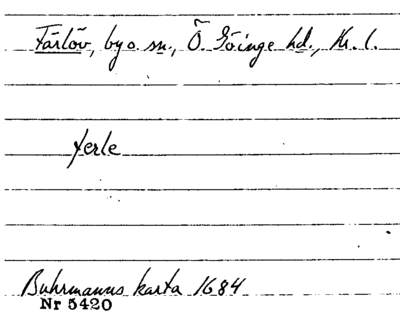 Färlöv, by o. sn., Ö. Göinge hd., Kr. l.
ferle
Buhrmanns karta 1684
Nr 5420